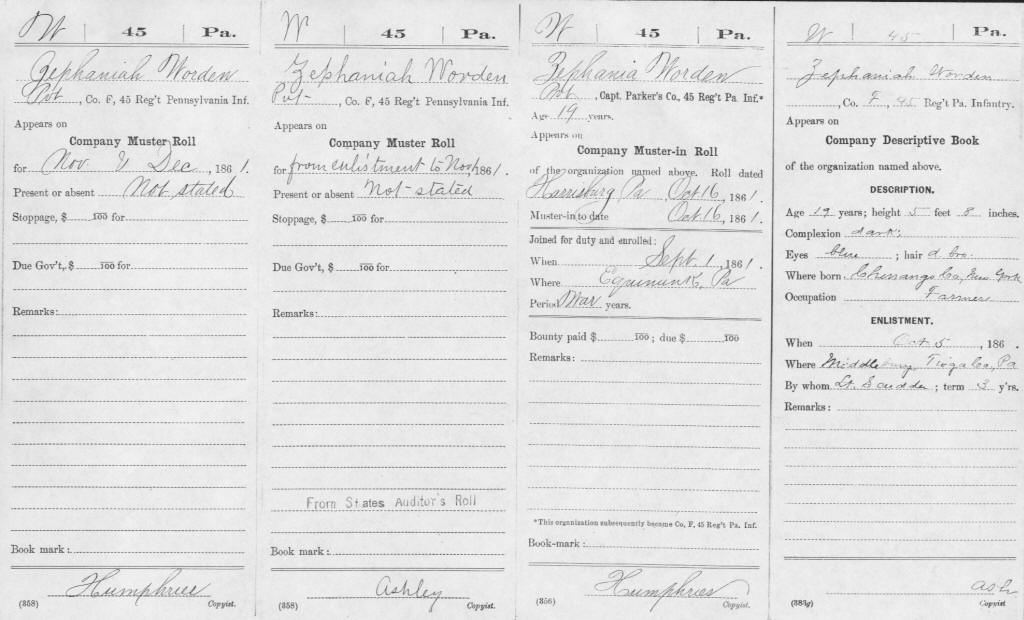 W 45 Pa.
Zephaniah Worden
Pvt, Co. F, 45 Reg't Pennsylvania Inf.
Appears on
Company Muster Roll
for Nov. & Dec, 1861.
Present or absent Not stated
Stoppage, $ 100 for
Due Gov't, $ 100 for
Remarks:
Book mark:
Humphries
(358) Copyist.
W 45 Pa.
Zephaniah Worden
Pvt, Co. F, 45 Reg't Pennsylvania Inf.
Appears on
Company Muster Roll
for from enlistment to Nov, 1861.
Present or absent Not stated
Stoppage, $ 100 for
Due Gov't, $ 100 for
Remarks:
From States Auditor's Roll
Book mark:
Ashley
(358) Copyist.
W 45 Pa.
Zephania Worden
Pvt, Capt. Parker's Co., 45 Reg't Pa. Inf.*
Age 19 years.
Appears on
Company Muster-in Roll
of the organization named above. Roll dated
Harrisburg Pa Oct 16, 1861.
Muster-in to date Oct 16, 1861.
Joined for duty and enrolled:
When Sept 1, 1861.
Where Equinunk, Pa
Period War years.
Bounty paid $ 100; due $ 100
Remarks:
*This organization subsequently became Co. F, 45 Reg't Pa. Inf.
Book-mark:
Humphries
(356) Copyist.
W 45 Pa.
Zephaniah Worden
, Co. F, 45 Reg't Pa. Infantry.
Appears on
Company Descriptive Book
of the organization named above.
DESCRIPTION.
Age 19 years; height 5 feet 8 inches.
Complexion dark;
Eyes blue; hair d. bro.
Where born Chenango Co, New York
Occupation Farmer
ENLISTMENT.
When Oct 5, 186 .
Where Middlebury, Tioga Co, Pa
By whom Lt. Scudder; term 3 y'rs.
Remarks:
Ash
(383g) Copyist.